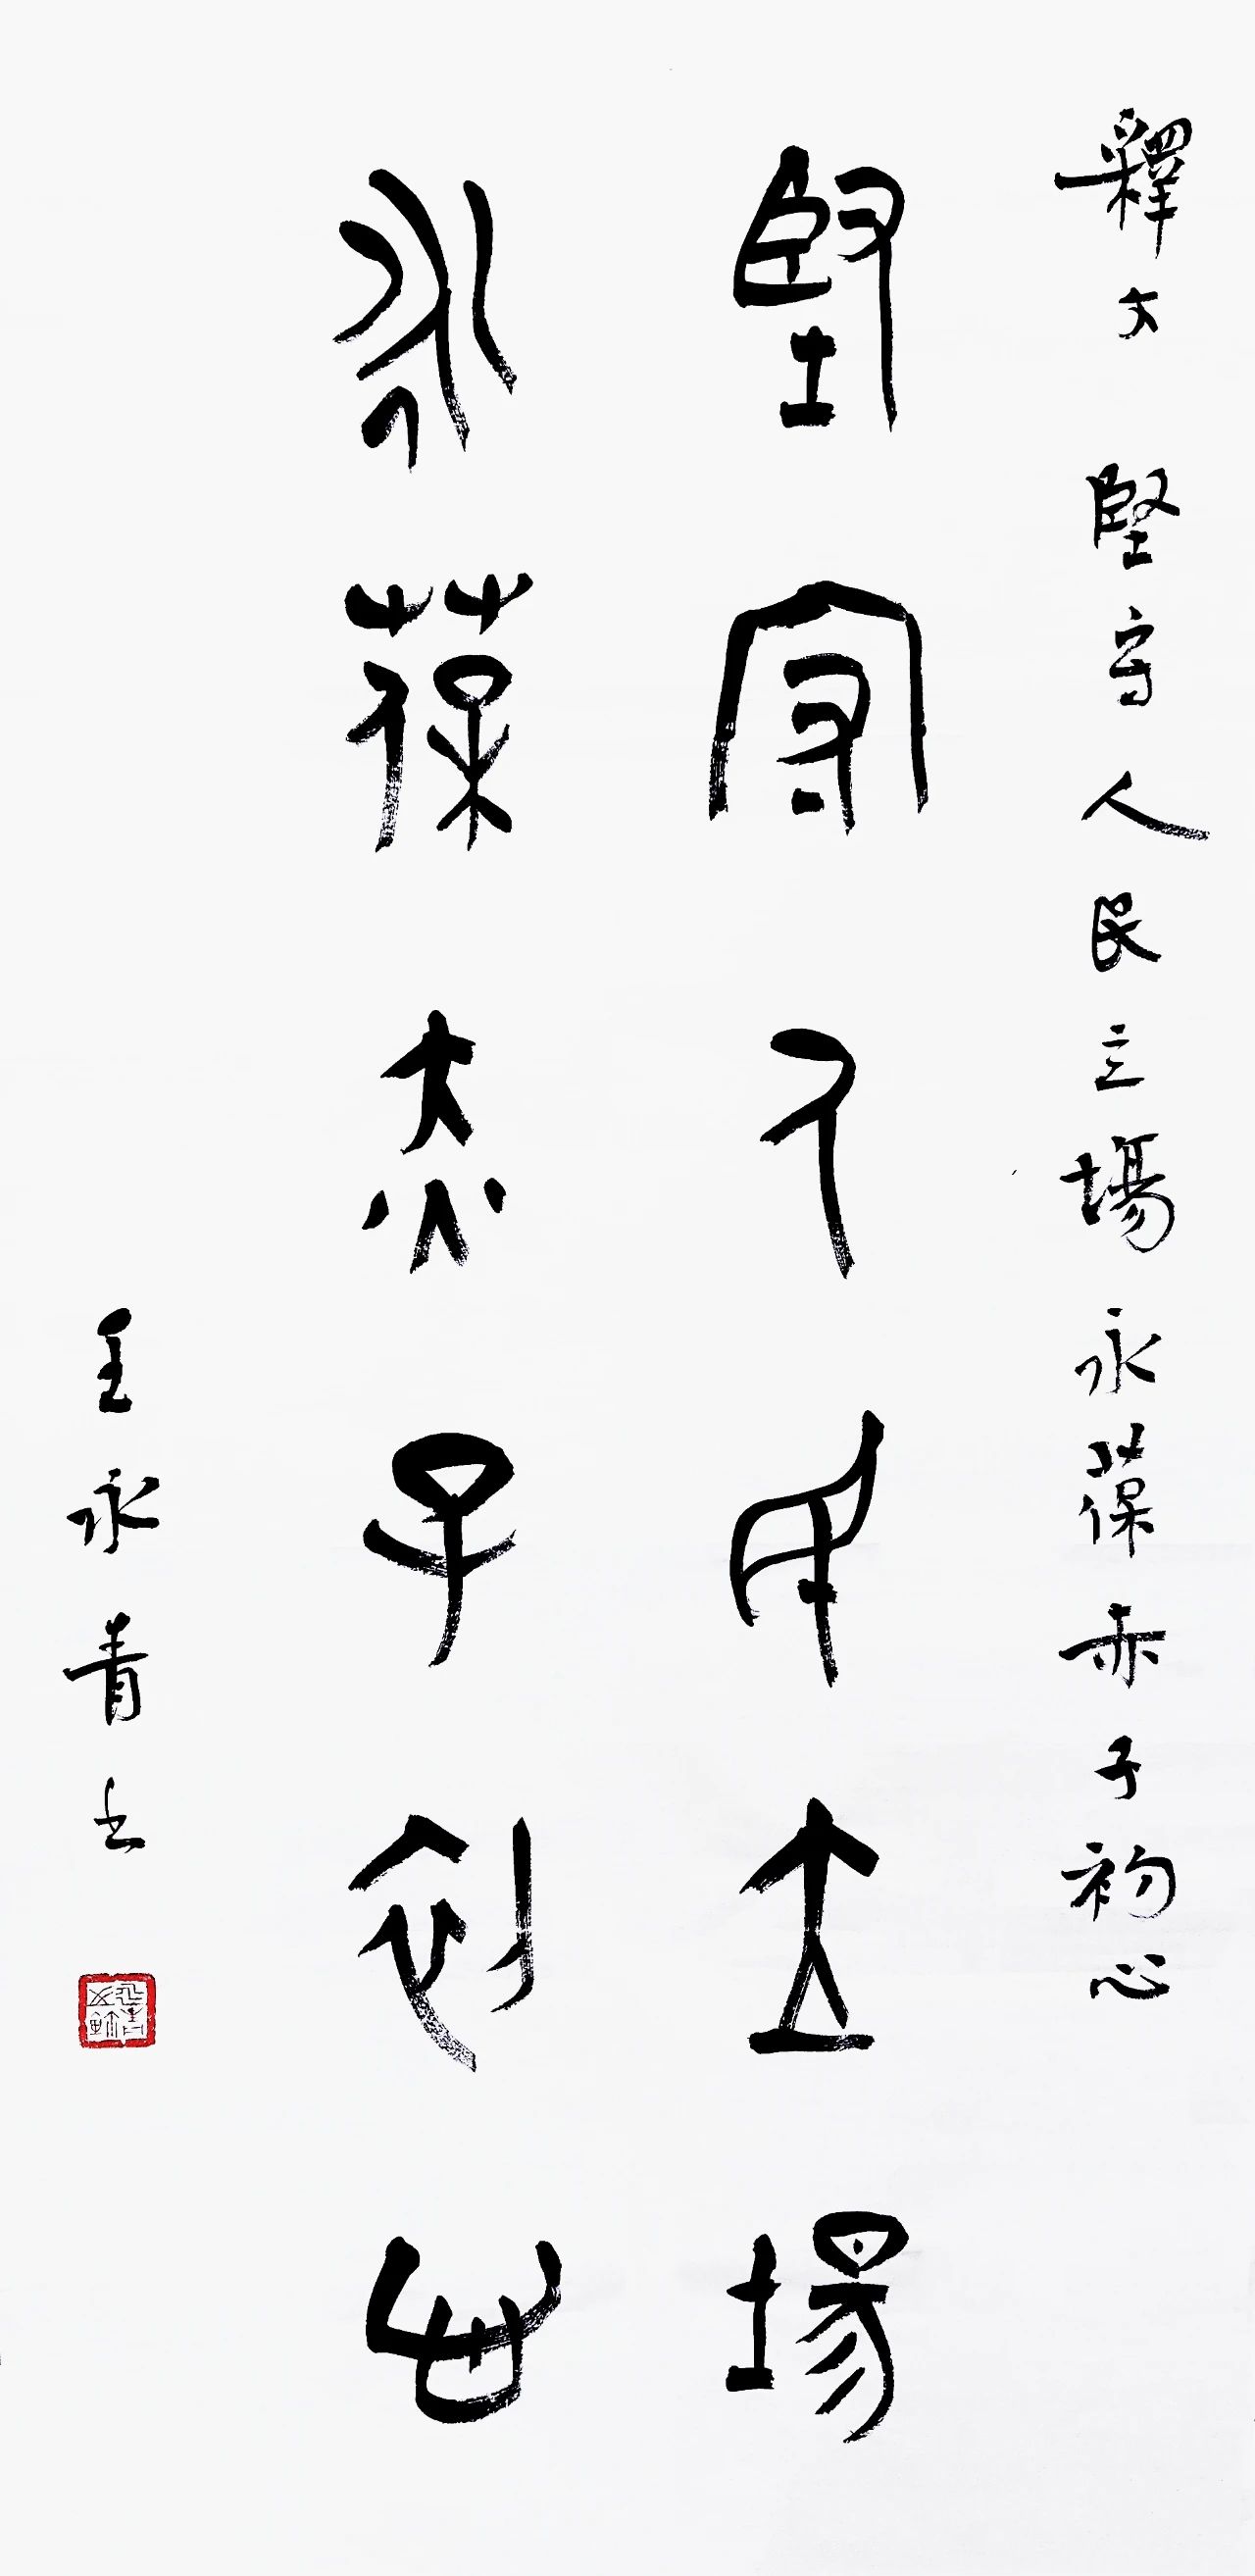 釋文 堅守人民立場永葆赤子初心
堅守人民立場
永葆赤子初心
王永青书